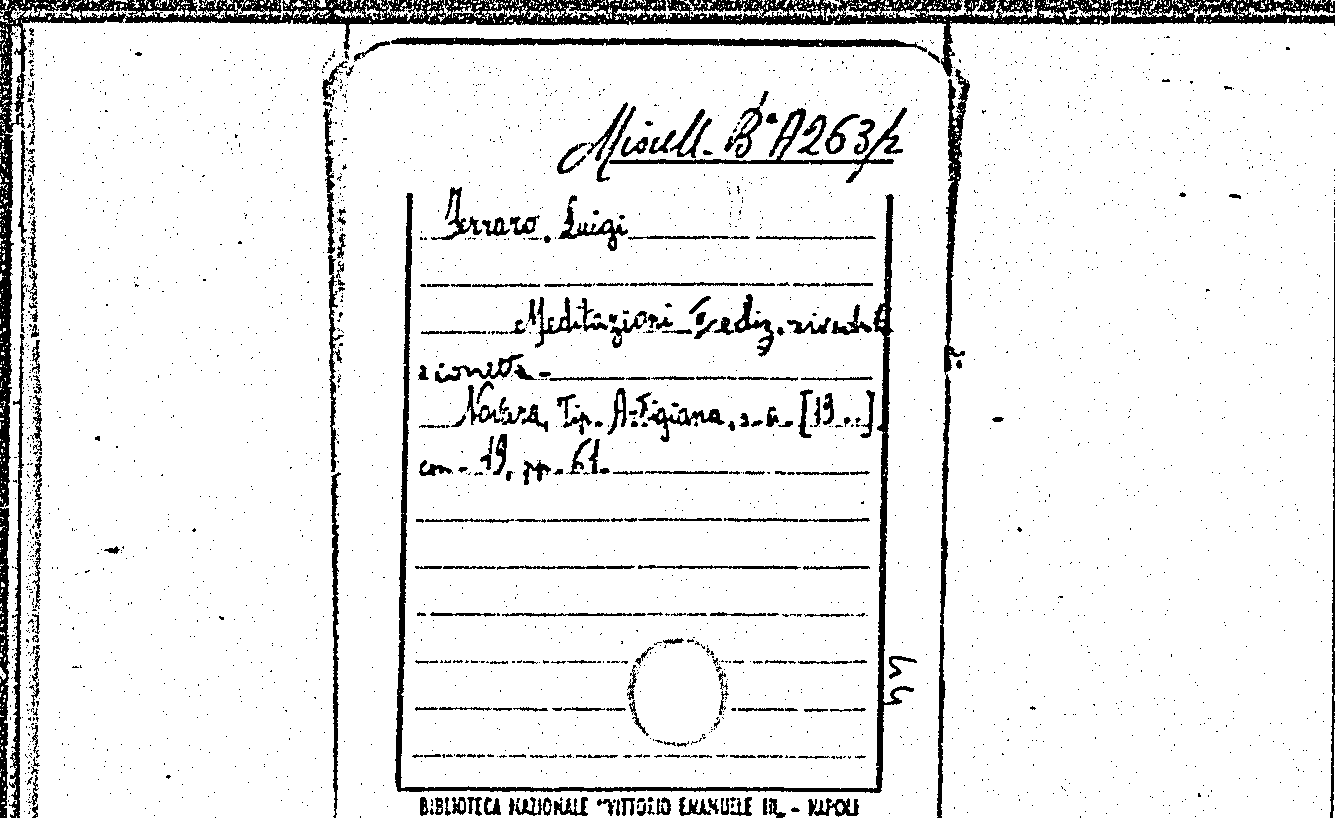 Miscell. Bª A263/2
Ferraro, Luigi
Meditazioni I ediz. riveduta
e corretta -
Novara, Tip. Artigiana, s. a. [19..],
cm. 19, pp. 61.
44
BIBLIOTECA NAZIONALE "VITTORIO EMANUELE III" - NAPOLI